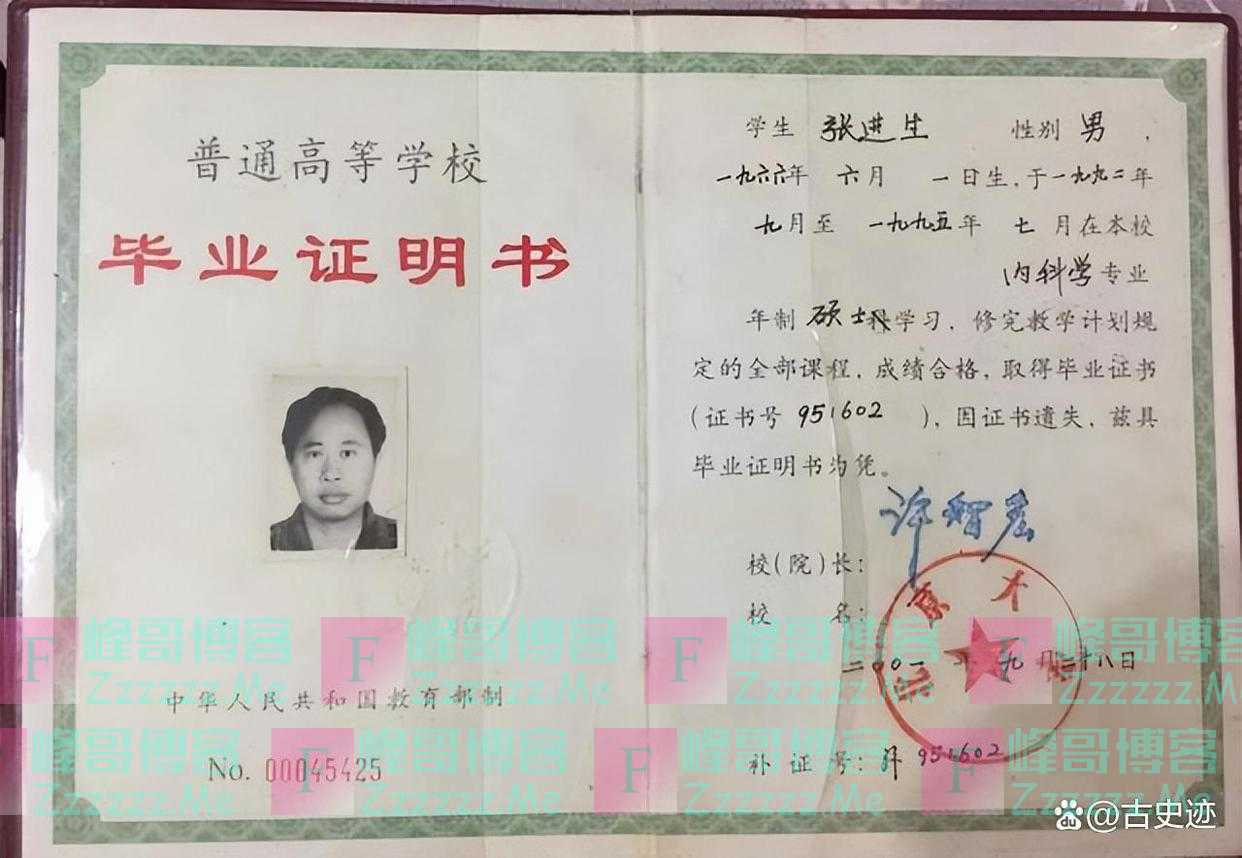 普通高等学校
毕业证明书
中华人民共和国教育部制
No. 00045425
学生 张进生 性别 男 ,
一九六六年 六月 一日生,于一九九二年
九月至 一九九五年 七 月在本校
内科学专业
年制 硕士科学习,修完教学计划规
定的全部课程,成绩合格,取得毕业证书
(证书号 951602 ),因证书遗失,兹具
毕业证明书为凭。
许智宏
校(院)长:
校 名:
北京大学
二00一年九月二十八日
补证号:951602
F 峰哥博客 F 峰哥博客 F 峰哥博客 F 峰哥博客
Zzzzzz.Me Zzzzzz.Me Zzzzzz.Me Zzzzzz.M
峰哥博客 F 峰哥博客 F 峰哥博客 F 峰哥博客
Zzzzzz.Me Zzzzzz.Me Zzzzzz.Me Zzzzzz.Me
du @古史迹